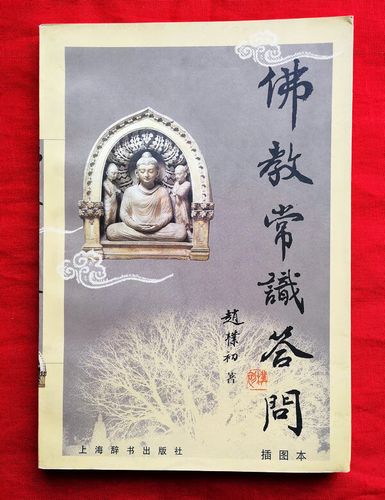 佛教常識答問
趙樸初 著
插图本
上海辞书出版社